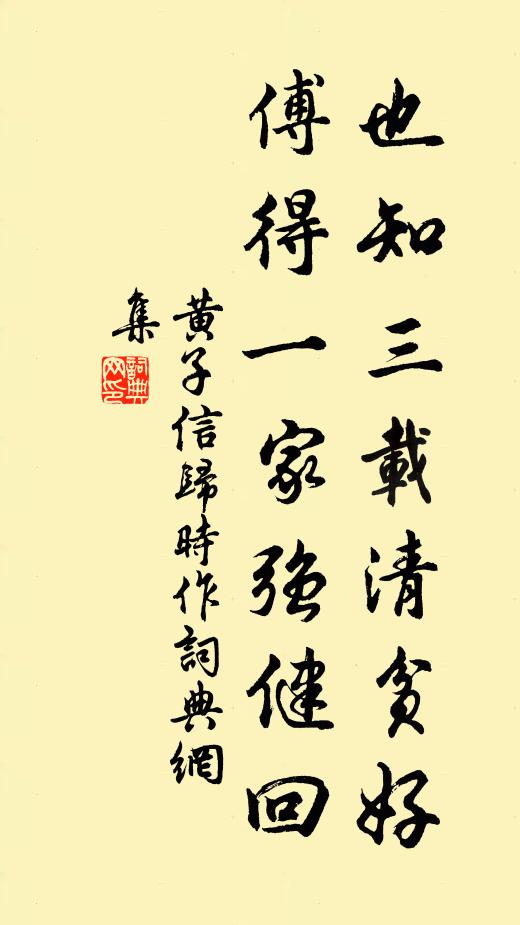 也知三載清貧好
傅得一家強健回
黃子信歸時作詞典網
集
詞典
网印